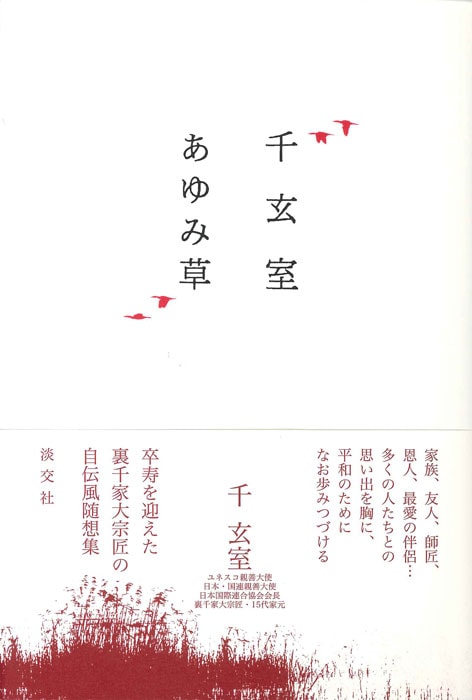 千玄室
あゆみ草
家族、友人、師匠、
恩人、最愛の伴侶…
多くの人たちとの
思い出を胸に、
平和のために
なお歩みつづける
千玄室
ユネスコ親善大使
日本・国連親善大使
日本国際連合協会会長
裏千家大宗匠・15代家元
卒寿を迎えた
裏千家大宗匠の
自伝風随想集
淡交社